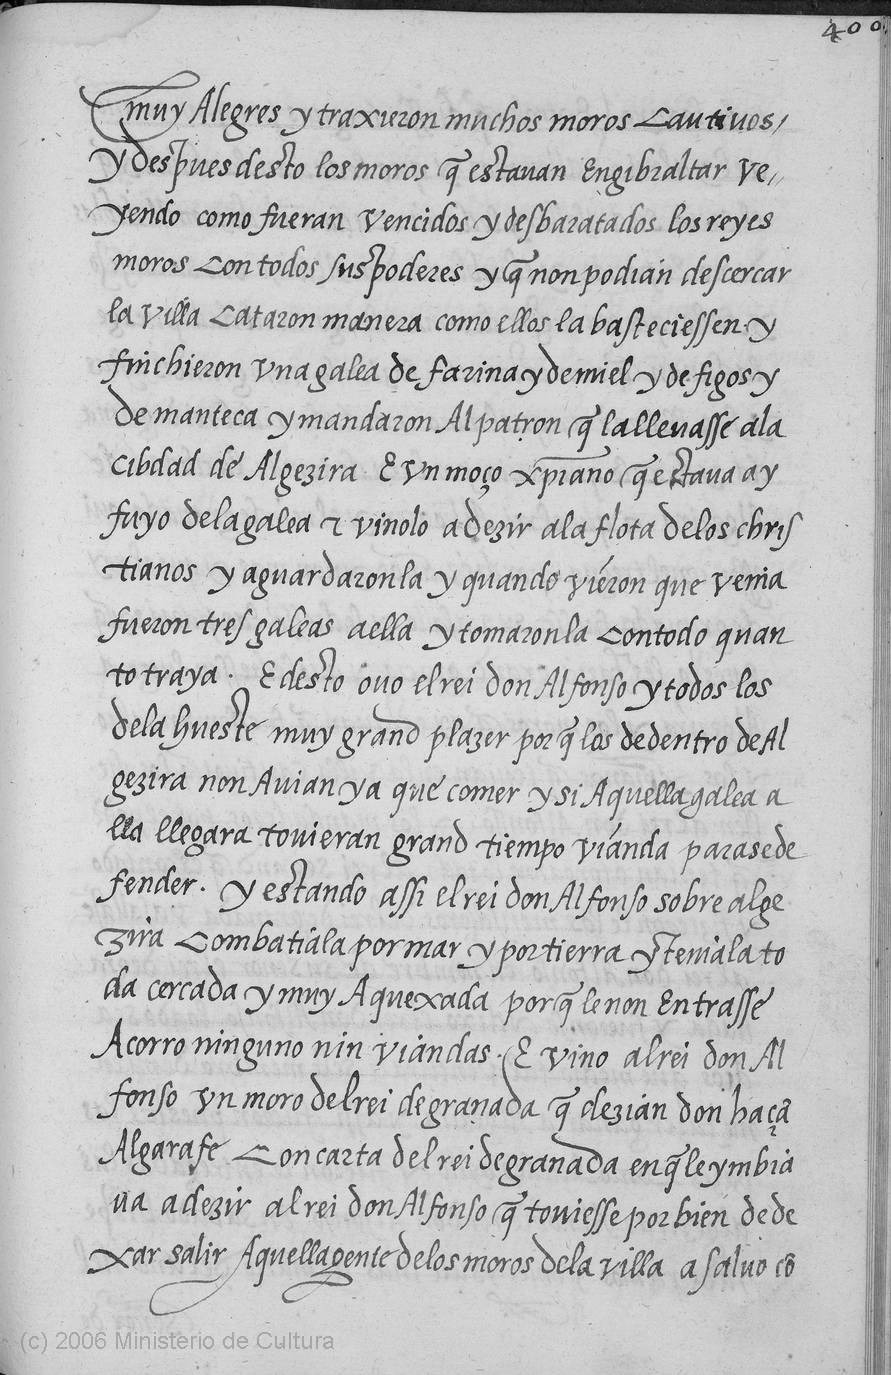 400.
muy Alegres y traxieron muchos moros Cautivos /
y despues desto los moros q̃ estauan Engibraltar Ve //
yendo como fueran Vencidos y desbaratados los reyes
moros Con todos sus poderes y q̃ non podian descercar
la Villa Cataron manera como ellos la basteciessen. y
finchieron Vna galea de farina y de miel y de figos y
de manteca y mandaron Al patron q̃ la lleuasse ala
Cibdad de Algezira E Vn moço xp̃iano q̃ estaua ay
fuyo dela galea τ vinolo a dezir ala flota delos chris
tianos y aguardaronla y quando vieron que venia
fueron tres galeas aella y tomaronla Con todo quan
to traya . E desto ouo el rei don Alfonso y todos los
dela hueste muy grand plazer por q̃ los de dentro de Al
gezira non Auian ya que comer y si Aquella galea a
lla llegara touieran grand tiempo vianda para se de
fender . y estando assi el rei don Alfonso sobre alge
zira Combatiala por mar y por tierra y teniala to
da cercada y muy Aquexada por q̃ le non Entrasse
Acorro ninguno nin viandas . E vino al rei don Al
fonso vn moro del rei de granada q̃ dezian don haçã
Algarafe Con carta del rei de granada en q̃ le ymbia
ua a dezir al rei don Alfonso q̃ touiesse por bien de de
xar salir Aquella gente delos moros dela villa a saluo cõ
(c) 2006 Ministerio de Cultura